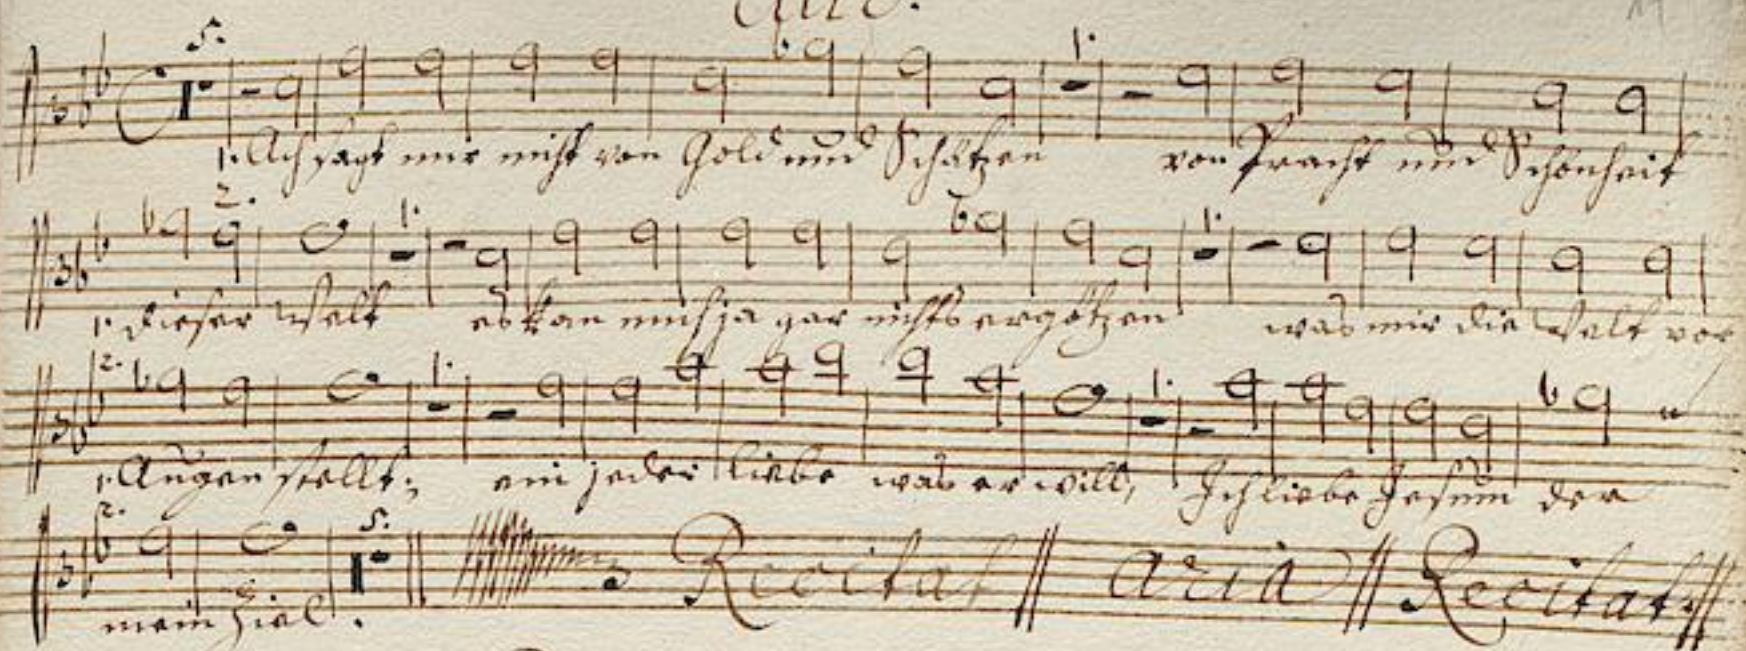 Aria.
5. 1.
1. Ach sagt mir nicht von Gold und Schätzen von Pracht und Schönheit
2. 1. 1.
1. dieser Welt es kan mich ja gar nichts ergötzen was mir die Welt vor
2. 1. 1.
1. Augen stellt; ein jeder liebe was er will, Ich liebe Jesum der
2. 5. Recitat Aria Recitat
mein Ziel.